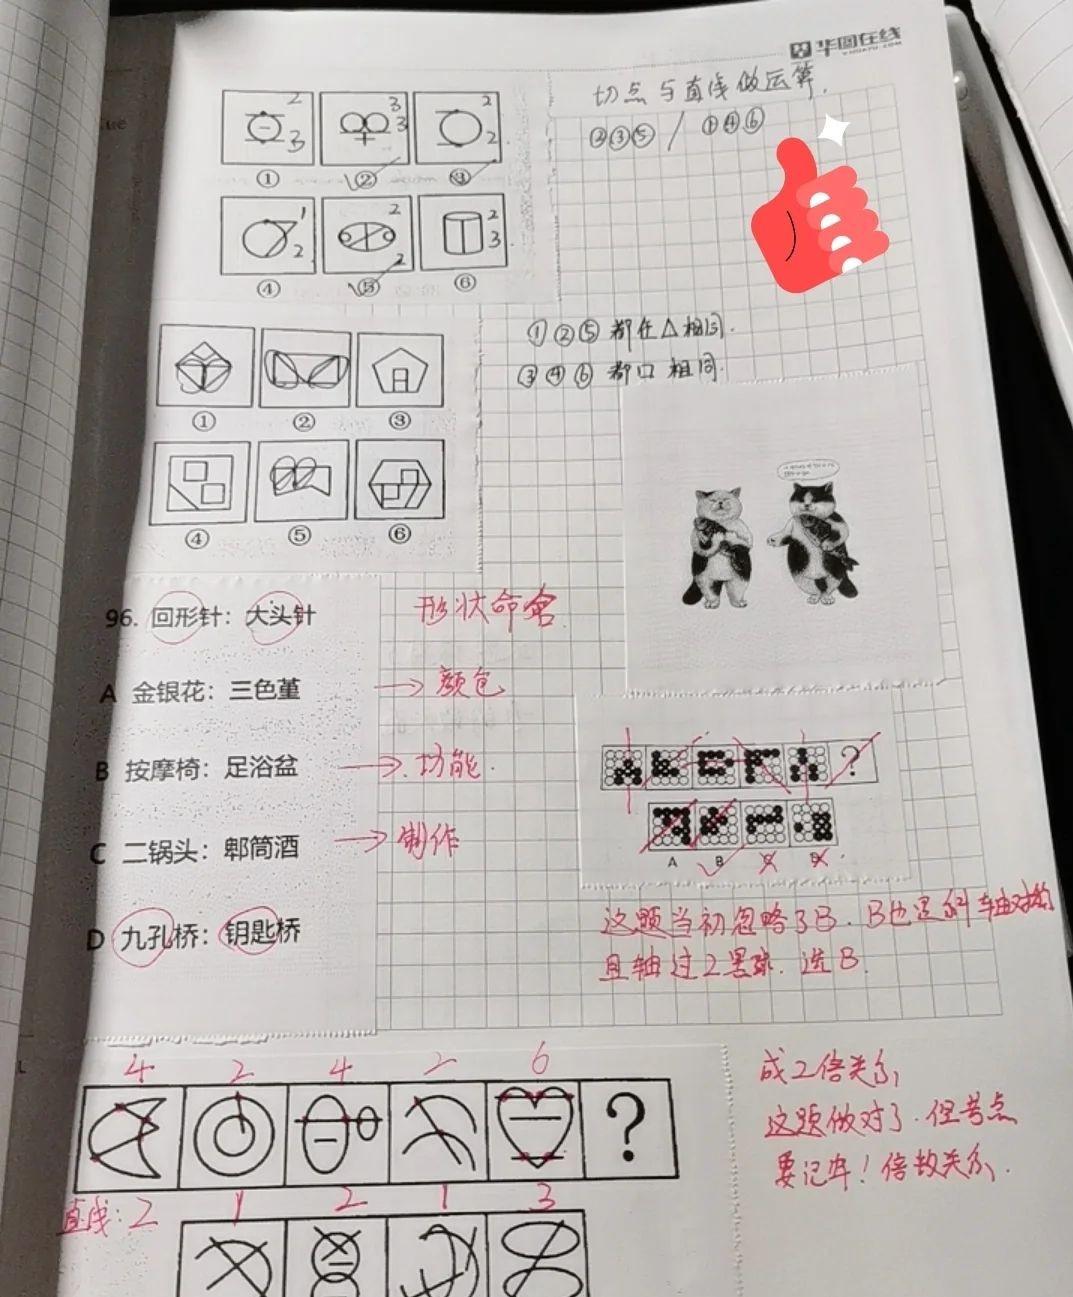 华图在线
切点与直线做运算.
②③⑤ / ①④⑥
2 3 2
3 3 2
① ② ③
1 2 2
2 2 3
④ ⑤ ⑥
①②⑤ 都在△相同.
③④⑥ 都口相同.
① ② ③
④ ⑤ ⑥
96. 回形针：大头针
形状命名
A 金银花：三色堇
颜色
B 按摩椅：足浴盆
功能.
C 二锅头：郫筒酒
制作
D 九孔桥：钥匙桥
?
A B C D
这题当初忽略了B. B也是斜轴对称
且轴过2黑球. 选B.
4 2 4 2 6
?
直线: 2 1 2 1 3
成2倍关系
这题做对了. 但考点
要记牢! 倍数关系.